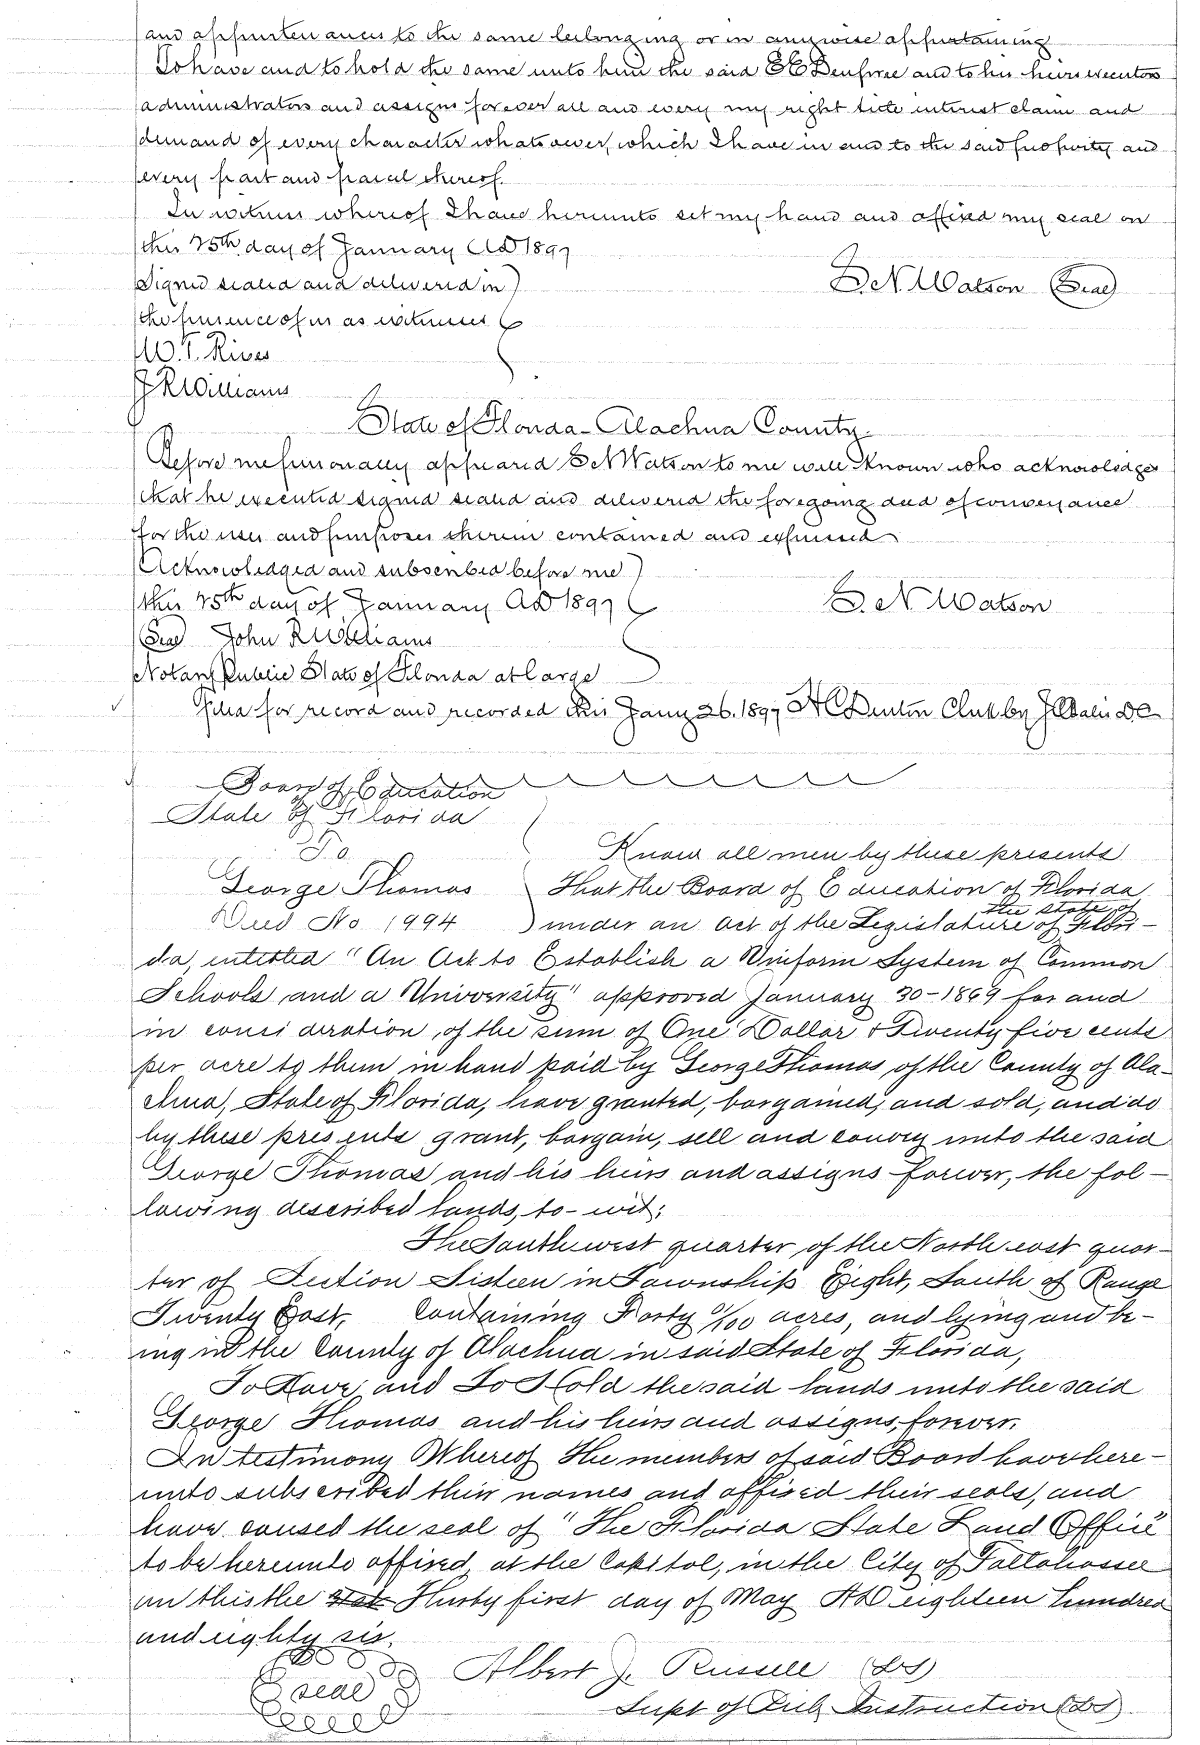 and appurtenances to the same belonging or in anywise appurtaining
To have and to hold the same unto him the said E C Denfree and to his heirs executors
administrators and assigns forever all and every my right title interest claim and
demand of every character whatsoever, which I have in and to the said property and
every part and parcel thereof.
In witness whereof I have hereunto set my hand and affixed my seal on
this 25th day of January AD 1897
Signed sealed and delivered in
N Watson (Seal)
the presence of us as witnesses
W. T. Rives
J R Williams
State of Florida - Alachua County.
Before me personally appeared N Watson to me well known who acknowledges
that he executed signed sealed and delivered the foregoing deed of conveyance
for the uses and purposes therein contained and expressed
Acknowledged and subscribed before me
this 25th day of January AD 1897
N. Watson
(Seal) John R Williams
Notary Public State of Florida at Large
Filed for record and recorded this Jany 26. 1897 H C Denton Clerk by D C
Board of Education
State of Florida
To
Know all men by these presents
George Thomas
That the Board of Education of Florida
the State of
Deed No 1994
under an Act of the Legislature of Flori-
da, entitled "An Act to Establish a Uniform System of Common
Schools, and a University" approved January 30 - 1869 for and
in consideration, of the sum of One Dollar & Twenty five cents
per acre to them in hand paid by George Thomas, of the County of Ala-
chua, State of Florida, have granted, bargained, and sold, and do
by these presents grant, bargain, sell and convey unto the said
George Thomas and his heirs and assigns forever, the fol-
lowing described lands, to-wit;
The South west quarter of the North east quar-
ter of Section Sisteen in Township Eight, South of Range
Twenty East, Containing Forty 0/100 acres, and lying and be-
ing in the County of Alachua in said State of Florida,
To Have and To Hold the said lands unto the said
George Thomas and his heirs and assigns, forever.
In testimony Whereof The members of said Board have here-
unto subscribed their names and affixed their seals, and
have caused the seal of "The Florida State Land Office"
to be hereunto affixed, at the Capitol, in the City of Tallahassee
on this the Thirty first day of May AD eighteen hundred
and eighty six.
seal
Albert J. Russell (LS)
Supt of Pub Instruction (LS)